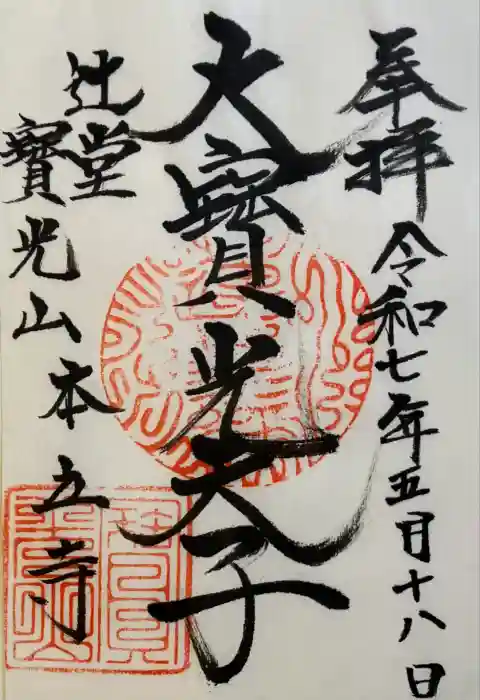 奉拝 令和七年五月十八日
大寶光天子
辻堂
寶光山本立寺